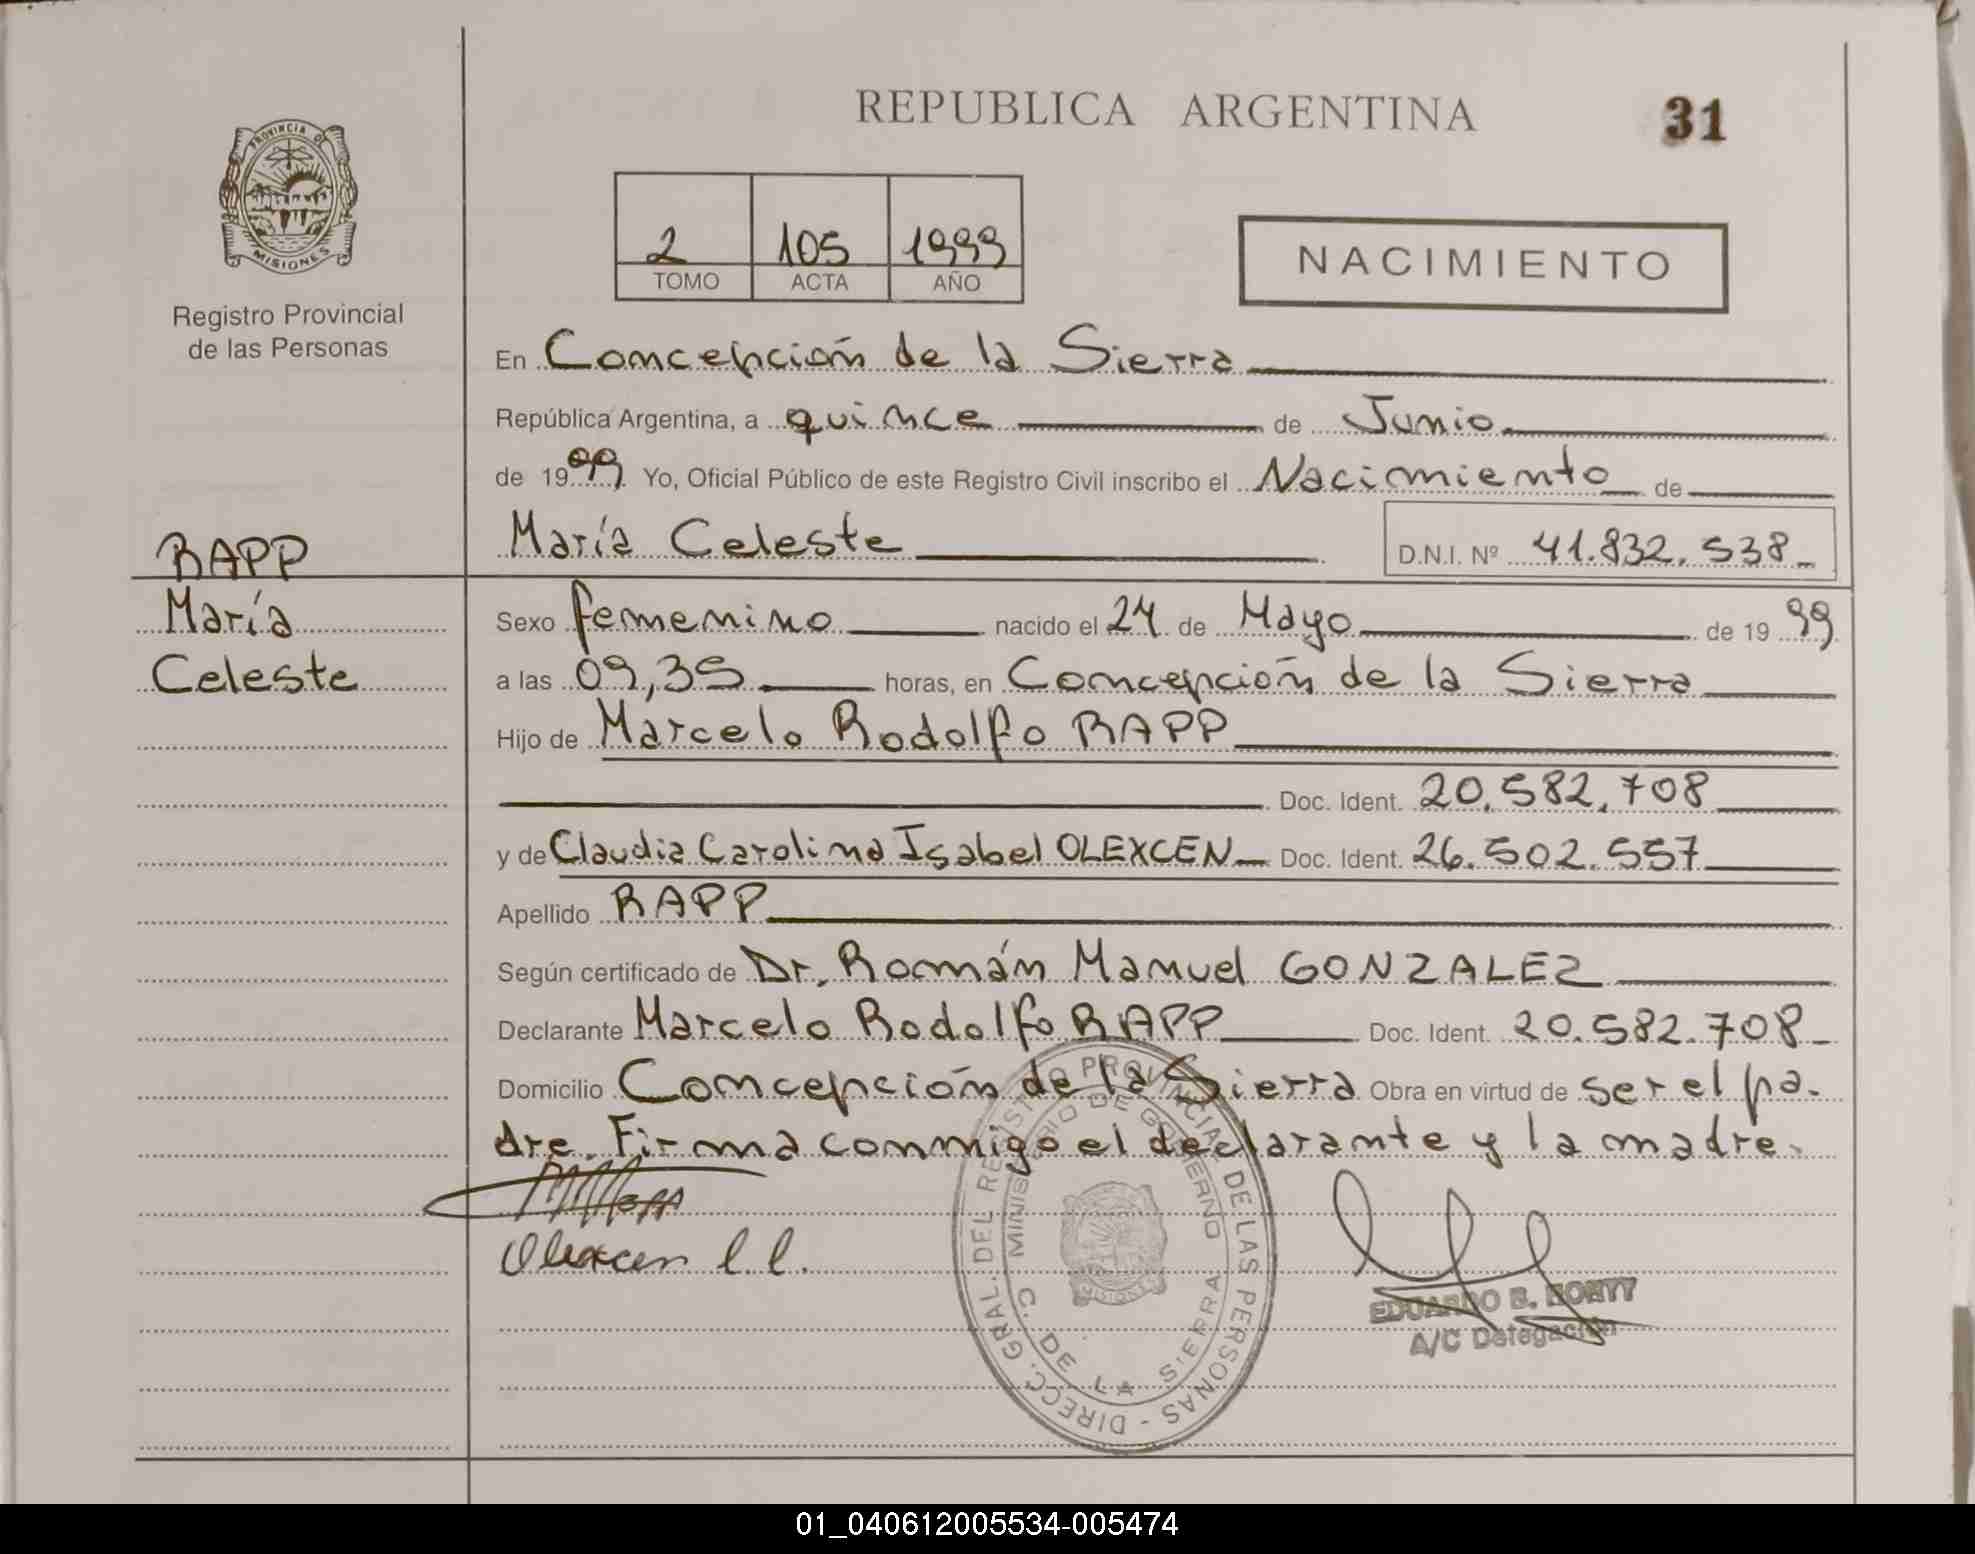 REPUBLICA ARGENTINA
31
PROVINCIA DE
MISIONES
Registro Provincial
de las Personas
2 105 1999
TOMO ACTA AÑO
NACIMIENTO
En Concepción de la Sierra
República Argentina, a quince de Junio
de 1999 Yo, Oficial Público de este Registro Civil inscribo el Nacimiento de
María Celeste D.N.I. Nº 41.832.538
RAPP
María
Celeste
Sexo femenino nacido el 24 de Mayo de 1999
a las 09,35 horas, en Concepción de la Sierra
Hijo de Marcelo Rodolfo RAPP
Doc. Ident. 20.582.708
y de Claudia Carolina Isabel OLEXCEN Doc. Ident. 26.502.557
Apellido RAPP
Según certificado de Dr. Román Manuel GONZALEZ
Declarante Marcelo Rodolfo RAPP Doc. Ident. 20.582.708
Domicilio Concepción de la Sierra Obra en virtud de ser el pa-
dre. Firma conmigo el declarante y la madre.
Olexcen
DIRECC. GRAL. DEL REGISTRO PROVINCIAL DE LAS PERSONAS
MINISTERIO DE GOBIERNO
C. DE LA SIERRA
MISIONES
EDUARDO B.
A/C Delegación
01_040612005534-005474